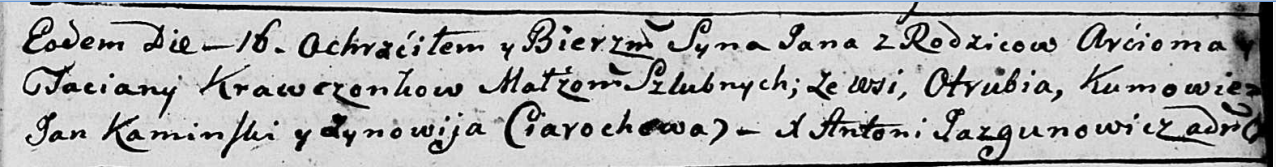 Eodem Die – 16. Ochrzciłem y Bierzm̃ Syna Jana z Rodzicow Arcioma y
Taciany Krawczonkow Małżom̃ Szlubnych; ze wsi, Otrubia, Kumowie=
Jan Kaminski y Zynowija (Ciarochowa) – X Antoni Jazgunowicz